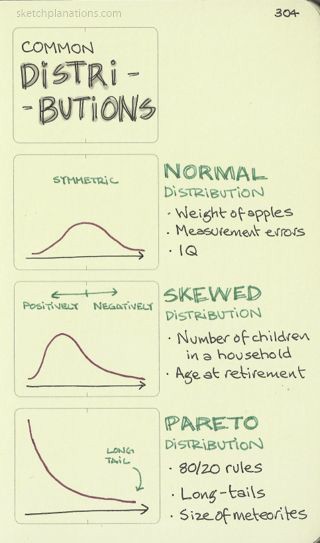 sketchplanations.com
304
COMMON
DISTRI-
-BUTIONS
SYMMETRIC
NORMAL
DISTRIBUTION
· Weight of apples
· Measurement errors
· IQ
POSITIVELY NEGATIVELY
SKEWED
DISTRIBUTION
· Number of children
in a household
· Age at retirement
LONG
TAIL
PARETO
DISTRIBUTION
· 80/20 rules
· Long-tails
· Size of meteorites